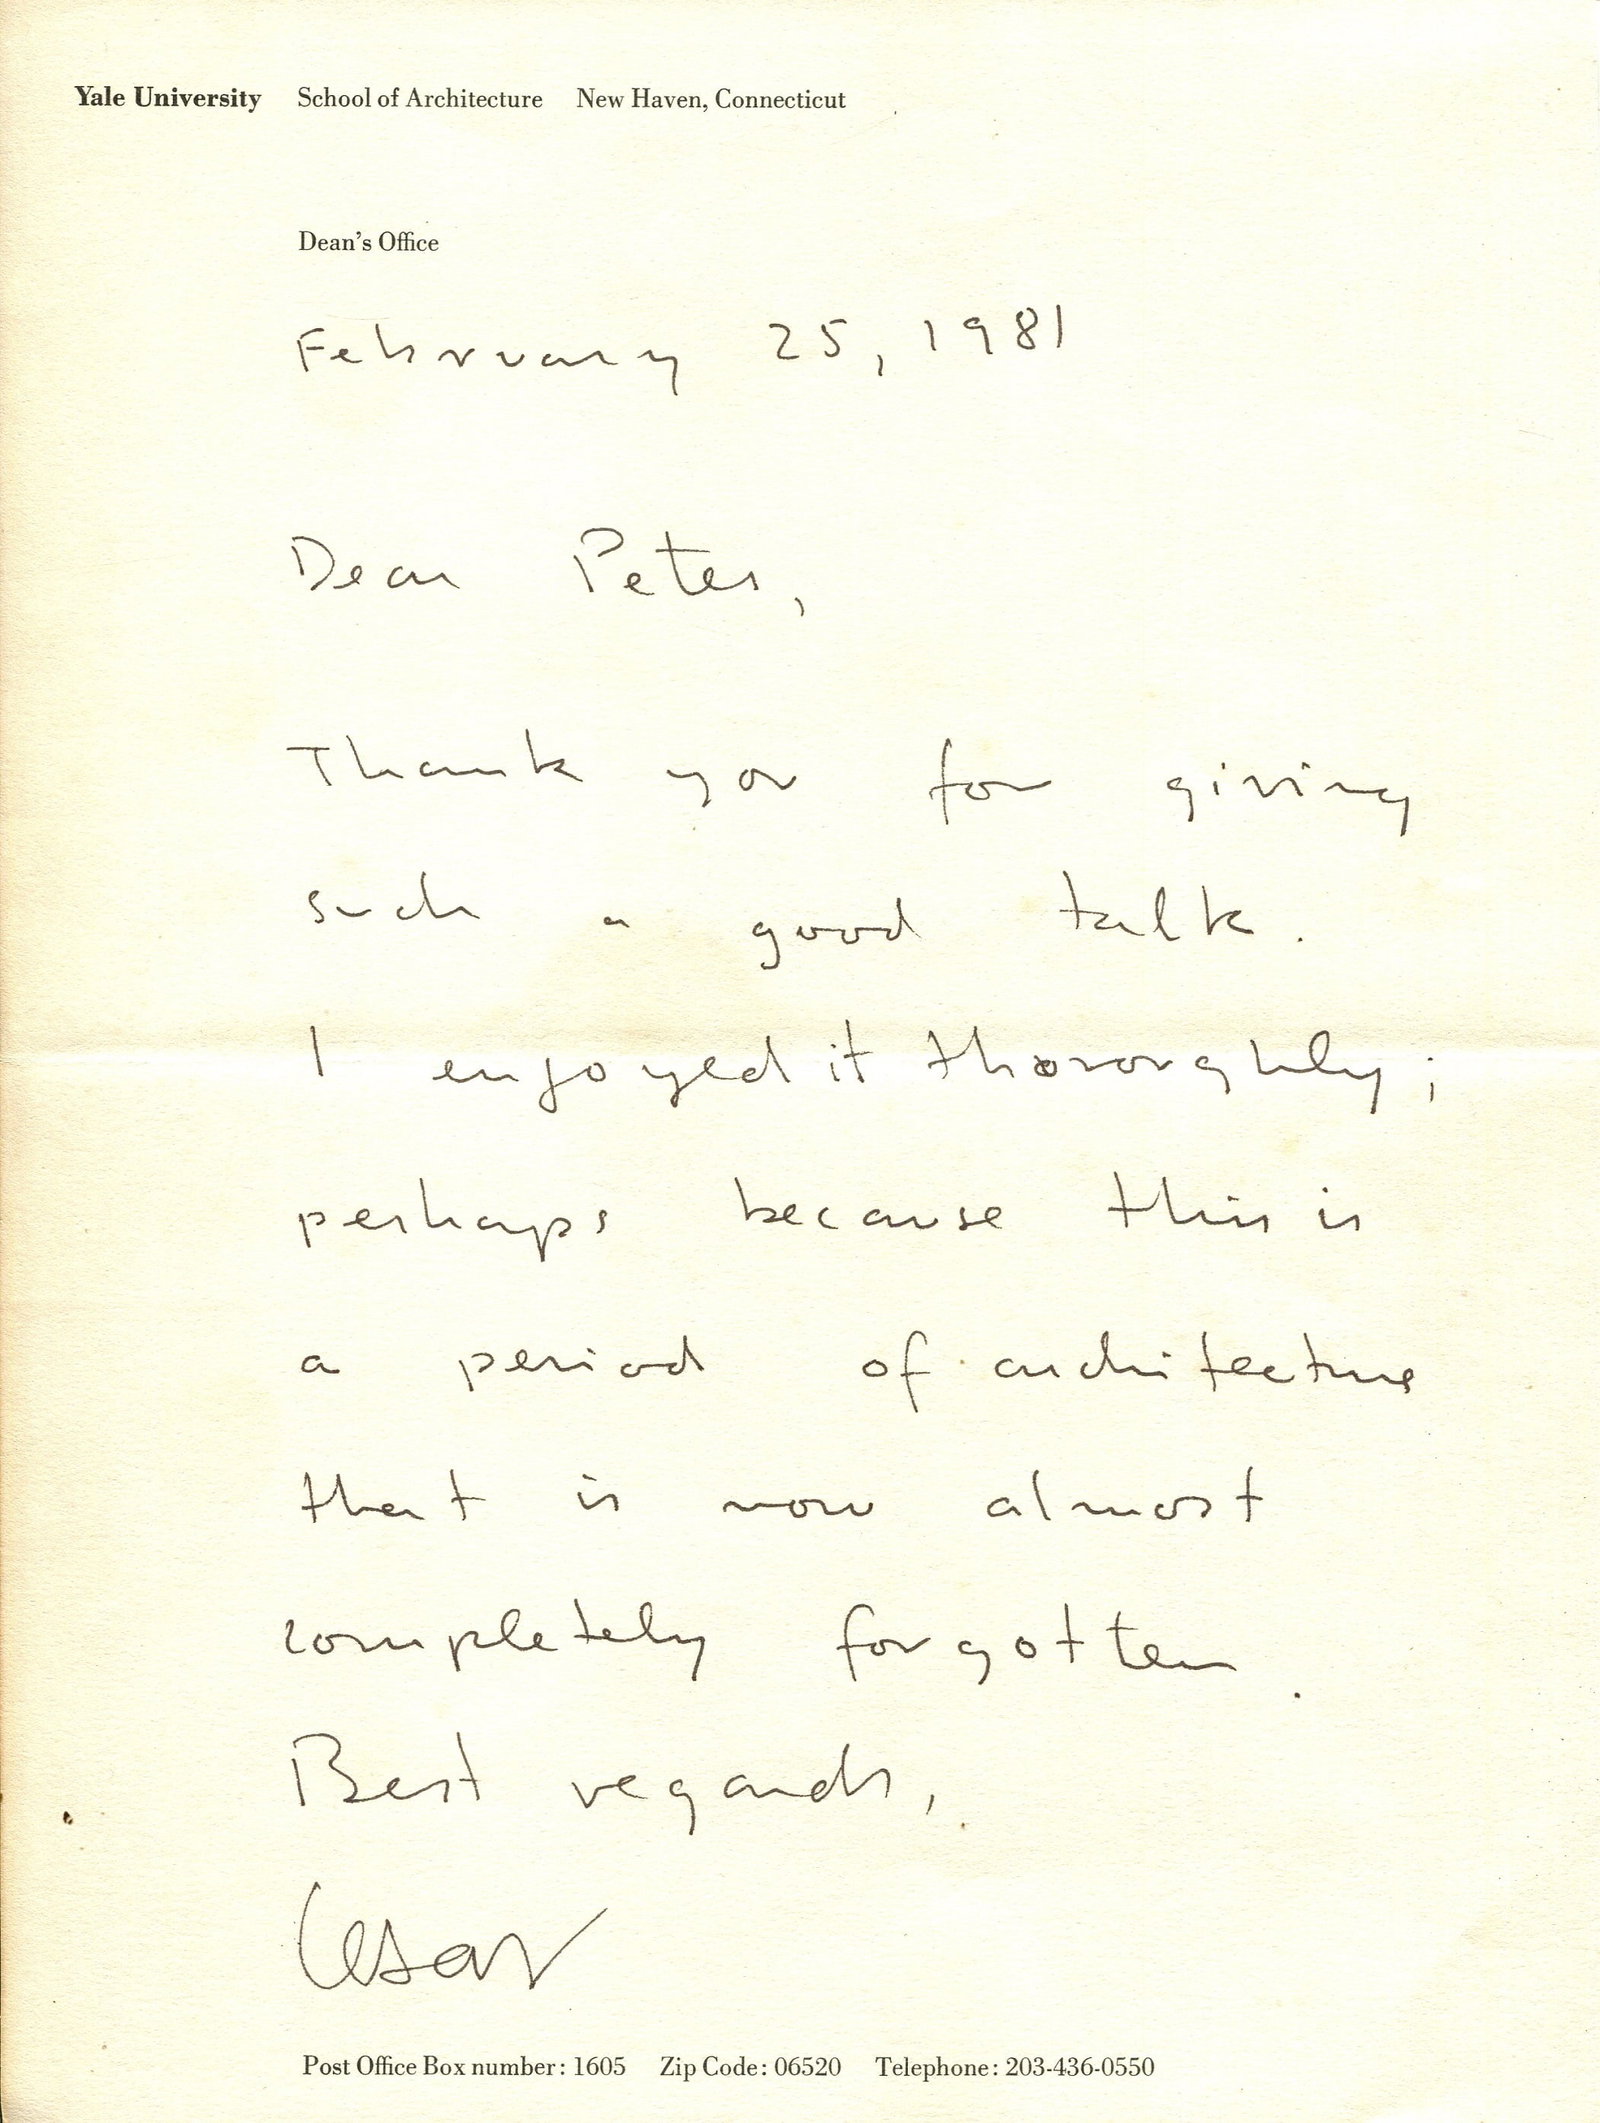 Yale University School of Architecture New Haven, Connecticut
Dean's Office
February 25, 1981
Dear Peter,
Thank you for giving
such a good talk.
I enjoyed it thoroughly;
perhaps because this is
a period of architecture
that is now almost
completely forgotten.
Best regards,
Cesar
Post Office Box number: 1605 Zip Code: 06520 Telephone: 203-436-0550